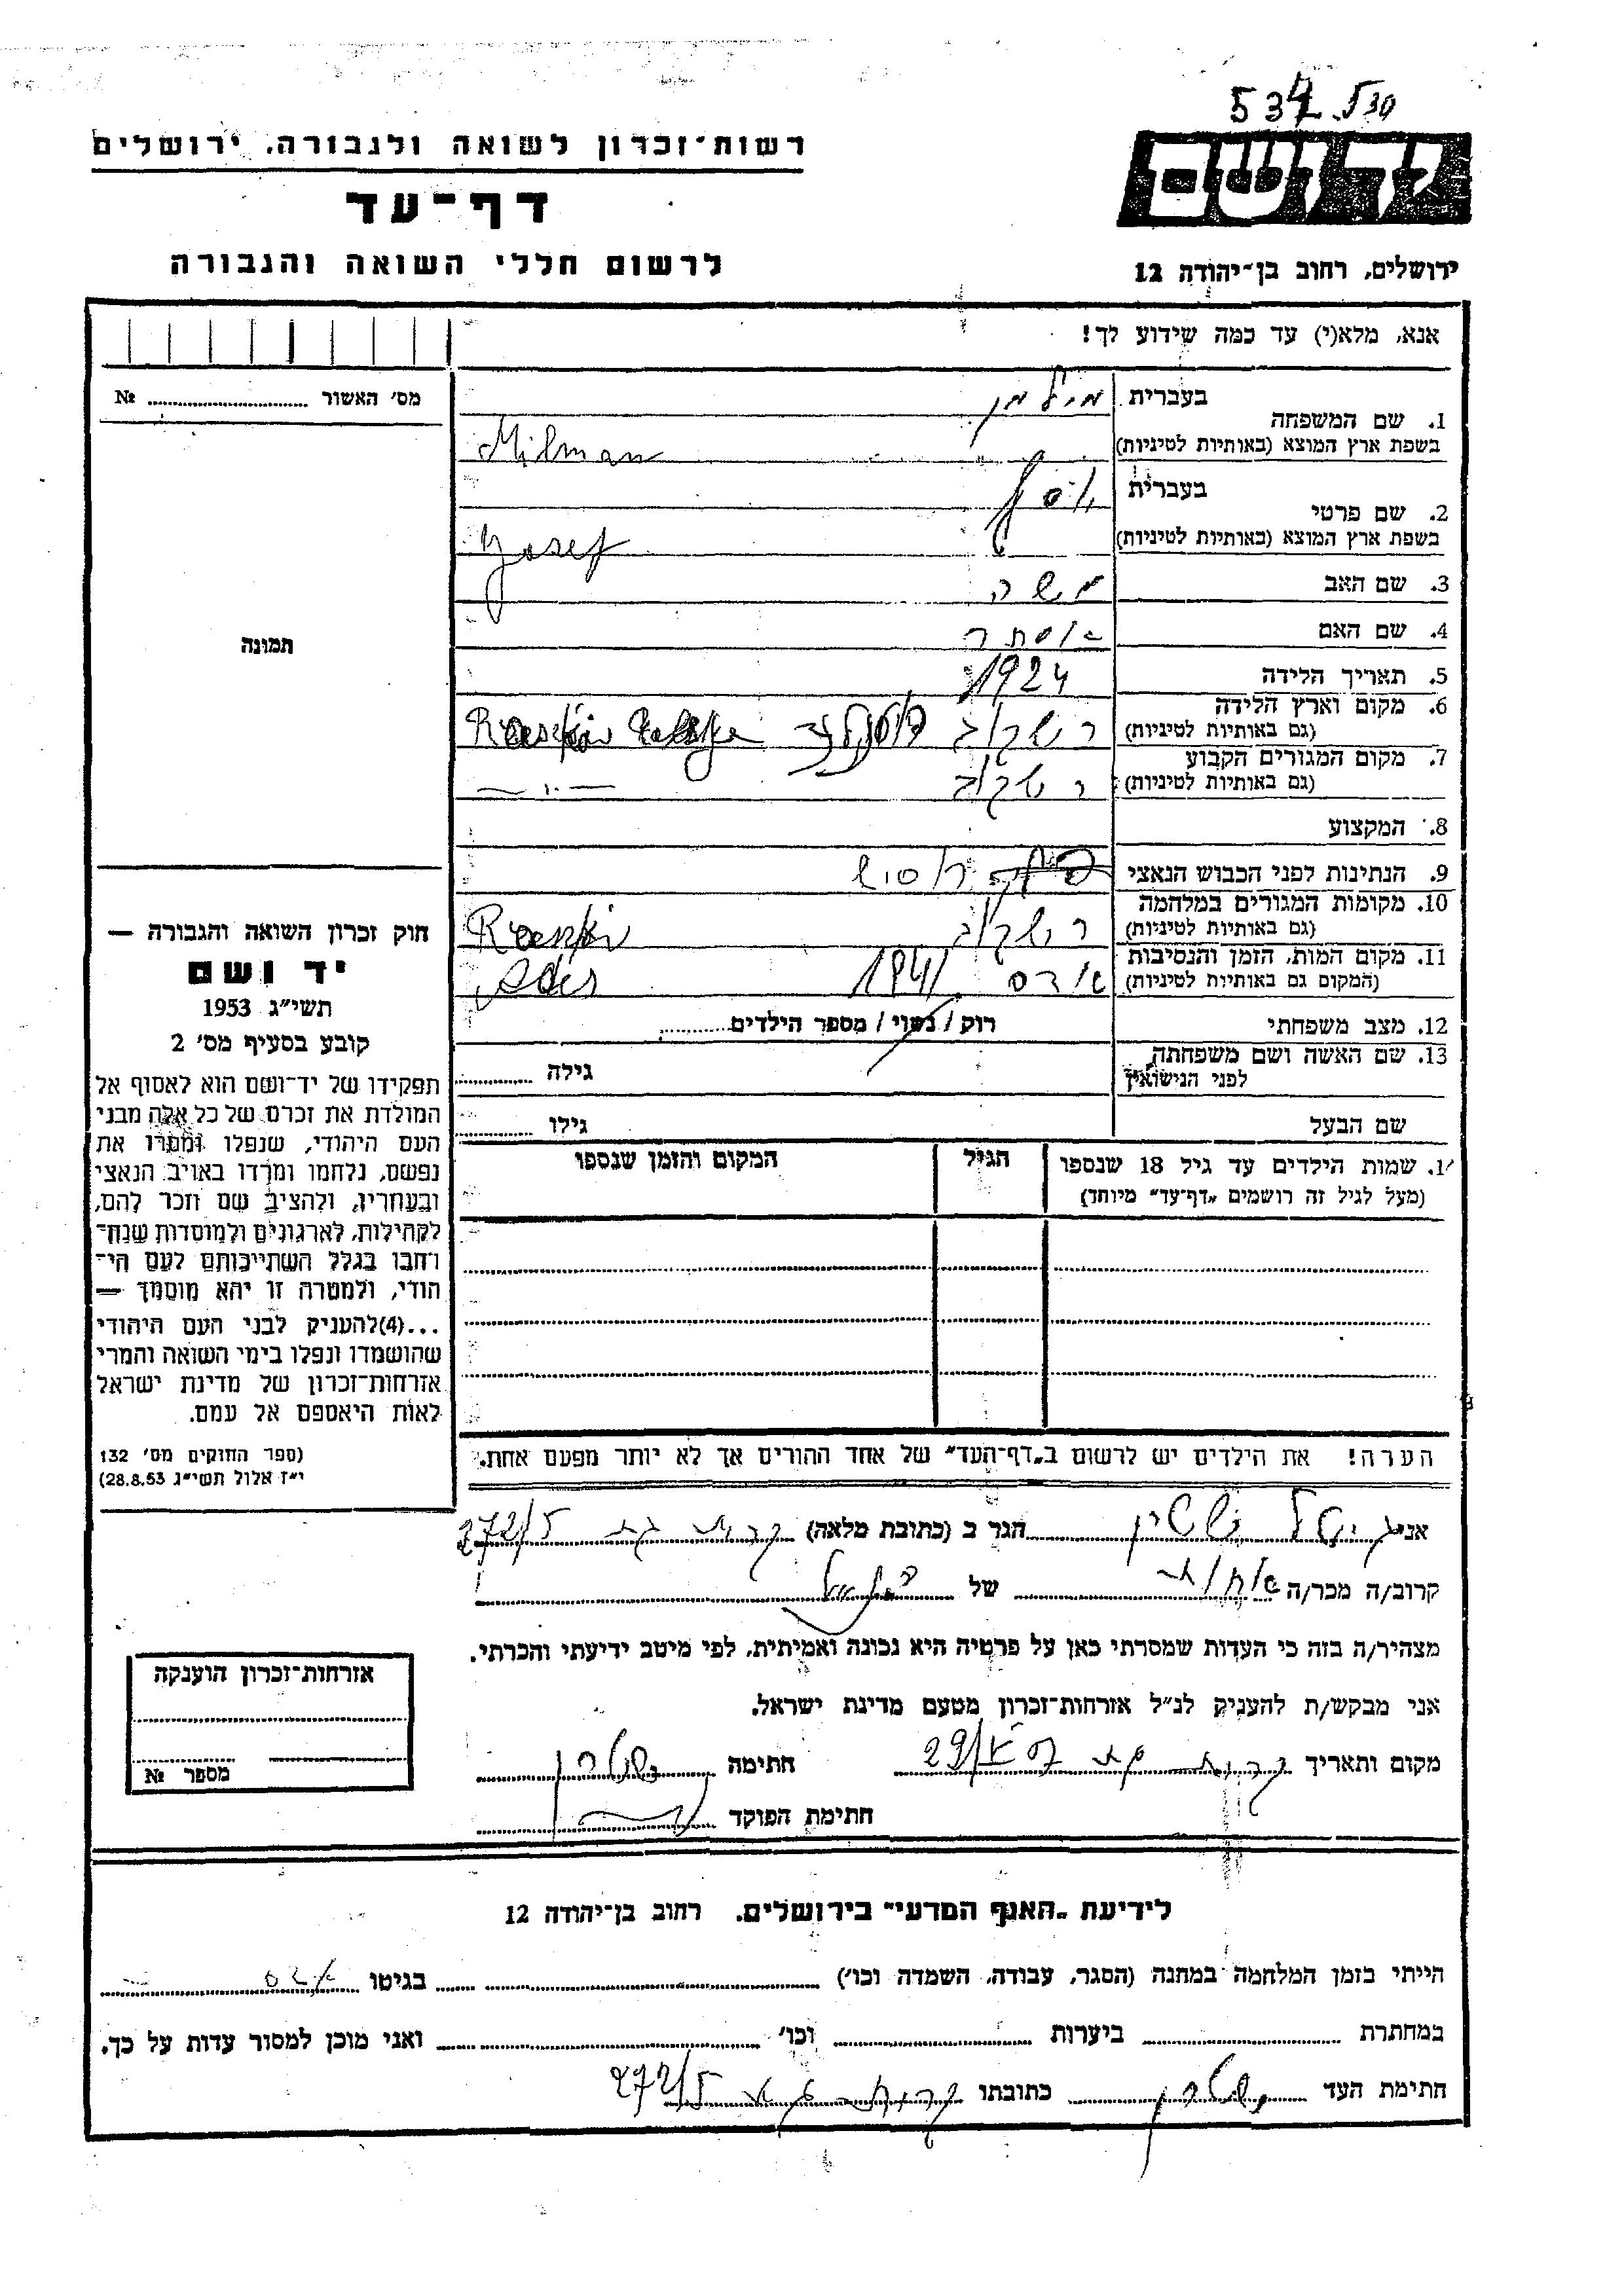 534
רשות־זכרון לשואה ולגבורה, ירושלים
דף־עד
לרשום חללי השואה והגבורה
ידושם
ירושלים, רחוב בן־יהודה 12
אנא, מלא(י) עד כמה שידוע לך!
מס׳ האשור № 
תמונה
1. שם המשפחה
בעברית מילמן
בשפת ארץ המוצא (באותיות לטיניות) Milman
2. שם פרטי
בעברית יוסף
בשפת ארץ המוצא (באותיות לטיניות) Yosef
3. שם האב משה
4. שם האם אסתר
5. תאריך הלידה 1924
6. מקום וארץ הלידה
(גם באותיות לטיניות) רשקוב
7. מקום המגורים הקבוע
(גם באותיות לטיניות) רשקוב
8. המקצוע
9. הנתינות לפני הכבוש הנאצי
10. מקומות המגורים במלחמה
(גם באותיות לטיניות) רשקוב
11. מקום המות, הזמן והנסיבות
(המקום גם באותיות לטיניות) 1941
12. מצב משפחתי רוק / נשוי / מספר הילדים
13. שם האשה ושם משפחתה
לפני הנישואין גילה
שם הבעל גילו
1. שמות הילדים עד גיל 18 שנספו
(מעל לגיל זה רושמים „דף־עד״ מיוחד)
הגיל
המקום והזמן שנספו
הערה! את הילדים יש לרשום ב„דף־העד״ של אחד ההורים אך לא יותר מפעם אחת.
חוק זכרון השואה והגבורה —
יד ושם
תשי״ג 1953
קובע בסעיף מס׳ 2
תפקידו של יד־ושם הוא לאסוף אל
המולדת את זכרם של כל אלה מבני
העם היהודי, שנפלו ומסרו את
נפשם, נלחמו ומרדו באויב הנאצי
ובעוזריו, ולהציב שם וזכר להם,
לקהילות, לארגונים ולמוסדות שנח־
רחבו בגלל השתייכותם לעם הי־
הודי, ולמטרה זו יהא מוסמך —
...(4)להעניק לבני העם היהודי
שהושמדו ונפלו בימי השואה והמרי
אזרחות־זכרון של מדינת ישראל
לאות היאספם אל עמם.
(ספר החוקים מס׳ 132
י״ז אלול תשי״ג 28.8.53)
אני הגר ב (כתובת מלאה) קרית גת 272/5
קרוב/ה מכר/ה של
מצהיר/ה בזה כי העדות שמסרתי כאן על פרטיה היא נכונה ואמיתית, לפי מיטב ידיעתי והכרתי.
אני מבקש/ת להעניק לנ״ל אזרחות־זכרון מטעם מדינת ישראל.
מקום ותאריך קרית גת חתימה
חתימת הפוקד
אזרחות־זכרון הוענקה
מספר №
לידיעת „האגף המדעי״ בירושלים, רחוב בן־יהודה 12
הייתי בזמן המלחמה במחנה (הסגר, עבודה, השמדה וכו׳) בגיטו
במחתרת ביערות וכו׳ ואני מוכן למסור עדות על כך.
חתימת העד כתובתו קרית גת 272/5